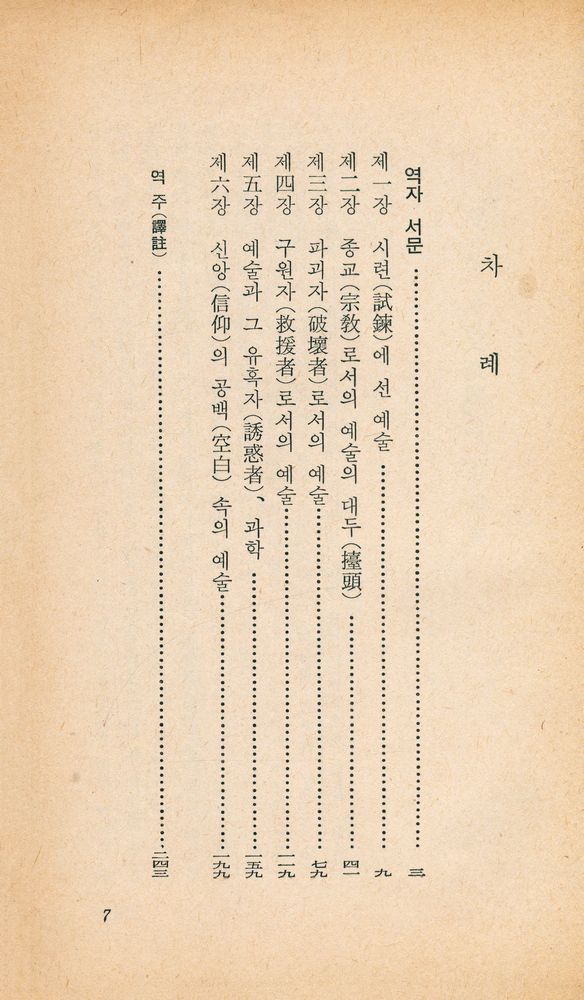 차 례
역자 서문……三
제一장 시련(試鍊)에 선 예술……九
제二장 종교(宗敎)로서의 예술의 대두(擡頭)……四一
제三장 파괴자(破壞者)로서의 예술……七九
제四장 구원자(救援者)로서의 예술……一一九
제五장 예술과 그 유혹자(誘惑者)、과학……一五九
제六장 신앙(信仰)의 공백(空白) 속의 예술……一九九
역 주(譯註)……二四三
7